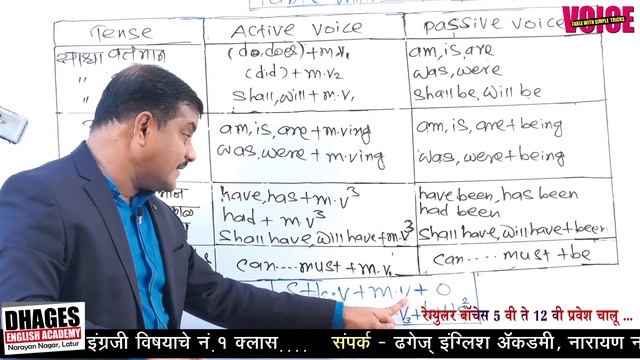 VOICE
TABLE WITH SIMPLE TRICKS
Tense Active voice Passive voice
साधा वर्तमान (do, does) + m.v₁ am, is, are
" (did) + m.v₂ was, were
" shall, will + m.v₁ shall be, will be
am, is, are + m.ving am, is, are + being
was, were + m.ving was, were + being
have, has + m.v³ have been, has been
had + m.v³ had been
shall have, will have + m.v³ shall have, will have + been
can....must + m.v₁ can....must + be
S + h.v + m.v + O
रेग्युलर बॅाचेस 5 वी ते 12 वी प्रवेश चालू ...
DHAGES
ENGLISH ACADEMY
Narayan Nagar, Latur
इंग्रजी विषयाचे नं.१ क्लास.... संपर्क - ढगेज् इंग्लिश ॲकडमी, नारायण न